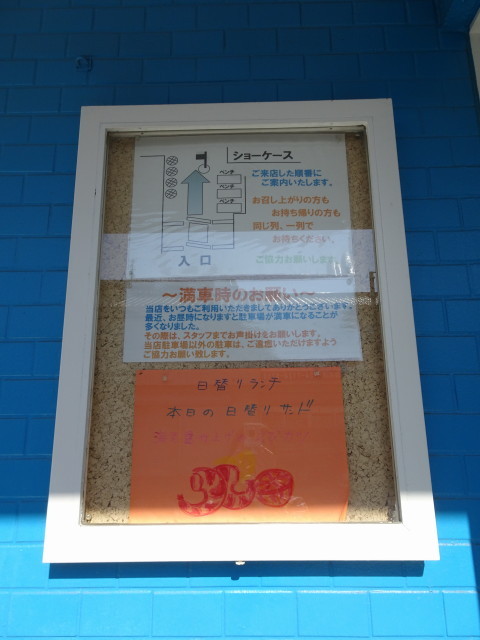 ショーケース
ベンチ
ベンチ
ベンチ
入口
ご来店した順番に
ご案内いたします。
お召し上がりの方も
お持ち帰りの方も
同じ列、一列で
お待ちください。
ご協力お願いします。
～満車時のお願い～
当店をいつもご利用いただきましてありがとうございます。
最近、お昼時になりますと駐車場が満車になることが
多くなりました。
その際は、スタッフまでお声掛けをお願いします。
当店駐車場以外の駐車は、ご遠慮いただけますよう
ご協力お願い致します。
日替りランチ
本日の日替りサンド